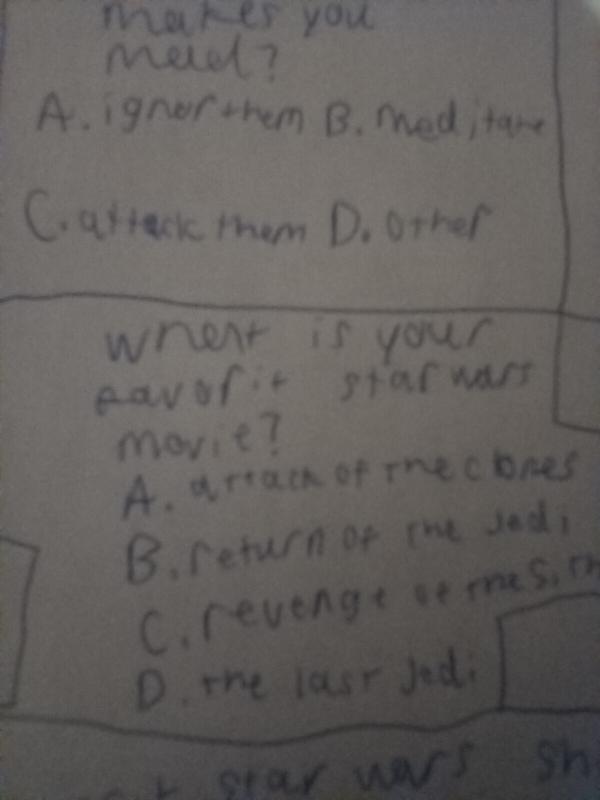 makes you
maed?
A. ignor them B. meditate
C. attack them D. other
what is your
favorit star wars
movie?
A. attack of the clones
B. return of the Jedi
C. revenge of the Sith
D. the last Jedi
star wars sh